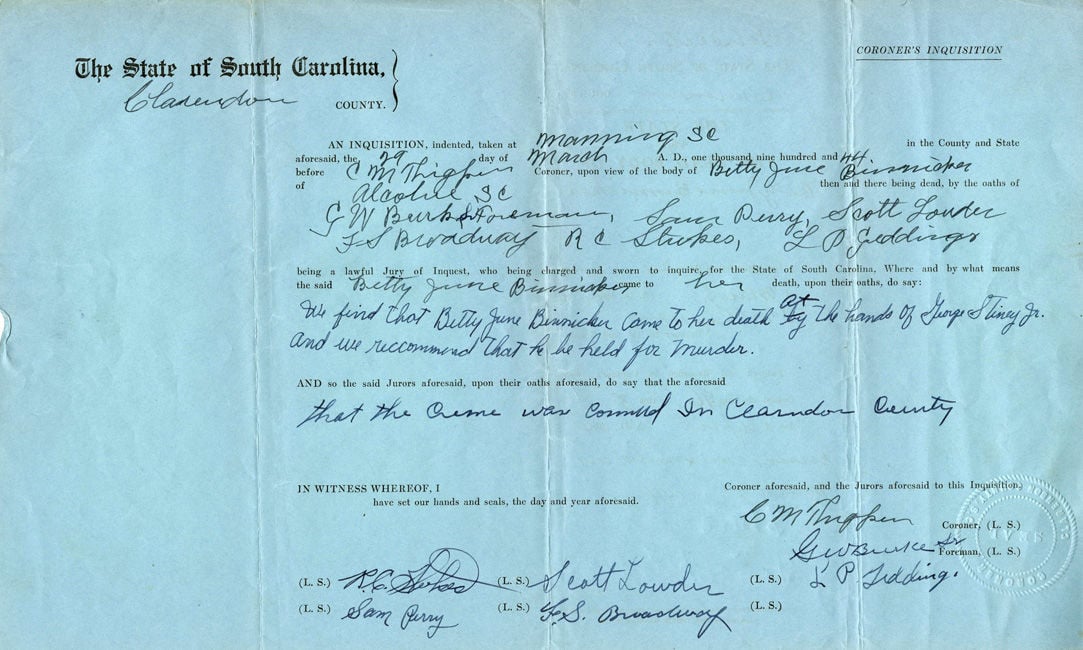 CORONER'S INQUISITION
The State of South Carolina,
Clarendon COUNTY.
AN INQUISITION, indented, taken at Manning SC in the County and State
aforesaid, the 29 day of March A. D., one thousand nine hundred and 44
before C M Thigpen Coroner, upon view of the body of Betty June Binnicker
of Alcolue SC then and there being dead, by the oaths of
G W Burke Sr Foreman, Sam Perry, Scott Lowder
F S Broadway R C Stukes, L P Geddings
being a lawful Jury of Inquest, who being charged and sworn to inquire, for the State of South Carolina, Where and by what means
the said Betty June Binnicker came to her death, upon their oaths, do say:
We find that Betty June Binnicker came to her death at the hands of George Stiney Jr.
and we reccommend that he be held for Murder.
AND so the said Jurors aforesaid, upon their oaths aforesaid, do say that the aforesaid
that the Crime was In Clarndon County
IN WITNESS WHEREOF, I Coroner aforesaid, and the Jurors aforesaid to this Inquisition,
have set our hands and seals, the day and year aforesaid.
C M Thigpen Coroner, (L. S.)
G W Burke Sr Foreman, (L. S.)
(L. S.) R.C. Stukes (L. S.) Scott Lowder (L. S.) L P Geddings
(L. S.) Sam Perry (L. S.) F. S. Broadway (L. S.)